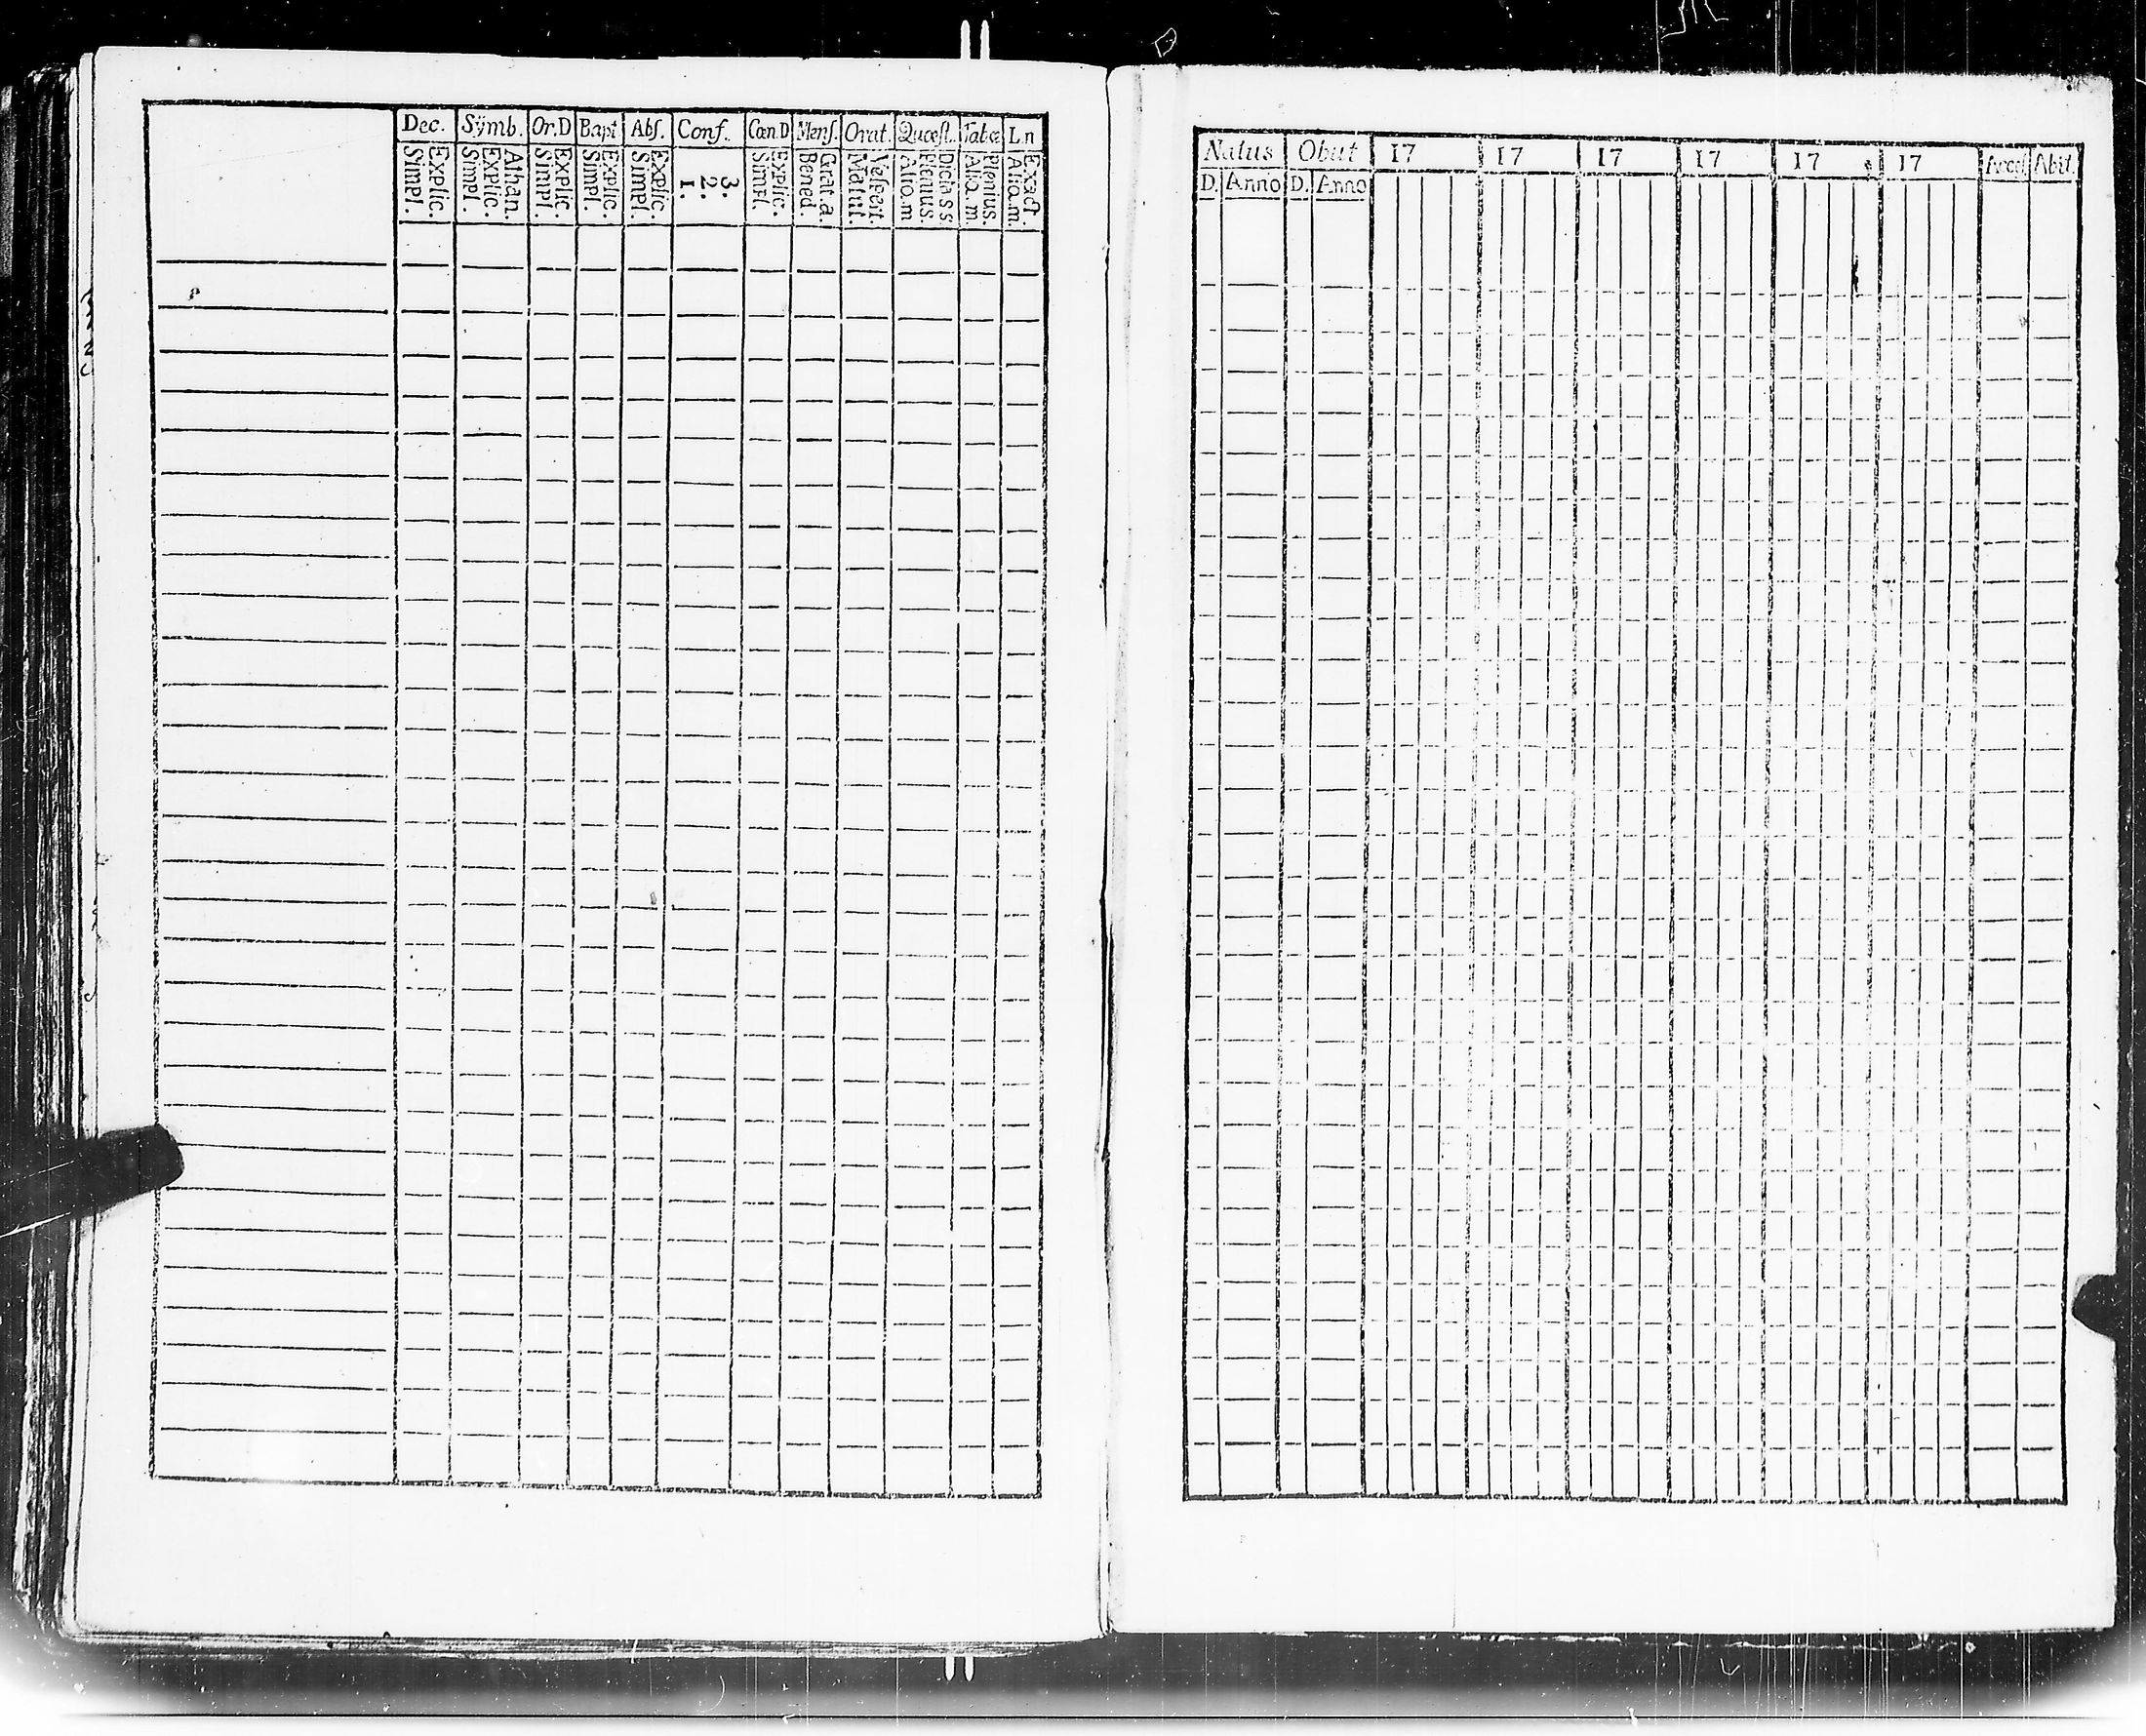 Dec. Symb. Or.D Bapt Abſ. Conf. Cœn.D Menſ. Orat. Quæſt. Tabæ L.n
Explic. Simpl. Athan. Explic. Simpl. Explic. Simpl. Explic. Simpl. Explic. Simpl. 3. 2. 1. Explic. Simpl. Grat.a. Bened. Veſpert. Matut. Dicta s s. Plenius. Aliq.m Plenius. Aliq.m. Exact. Aliq.m.
Natus Obiit 17 17 17 17 17 17 Acceſ. Abit.
D. Anno D. Anno